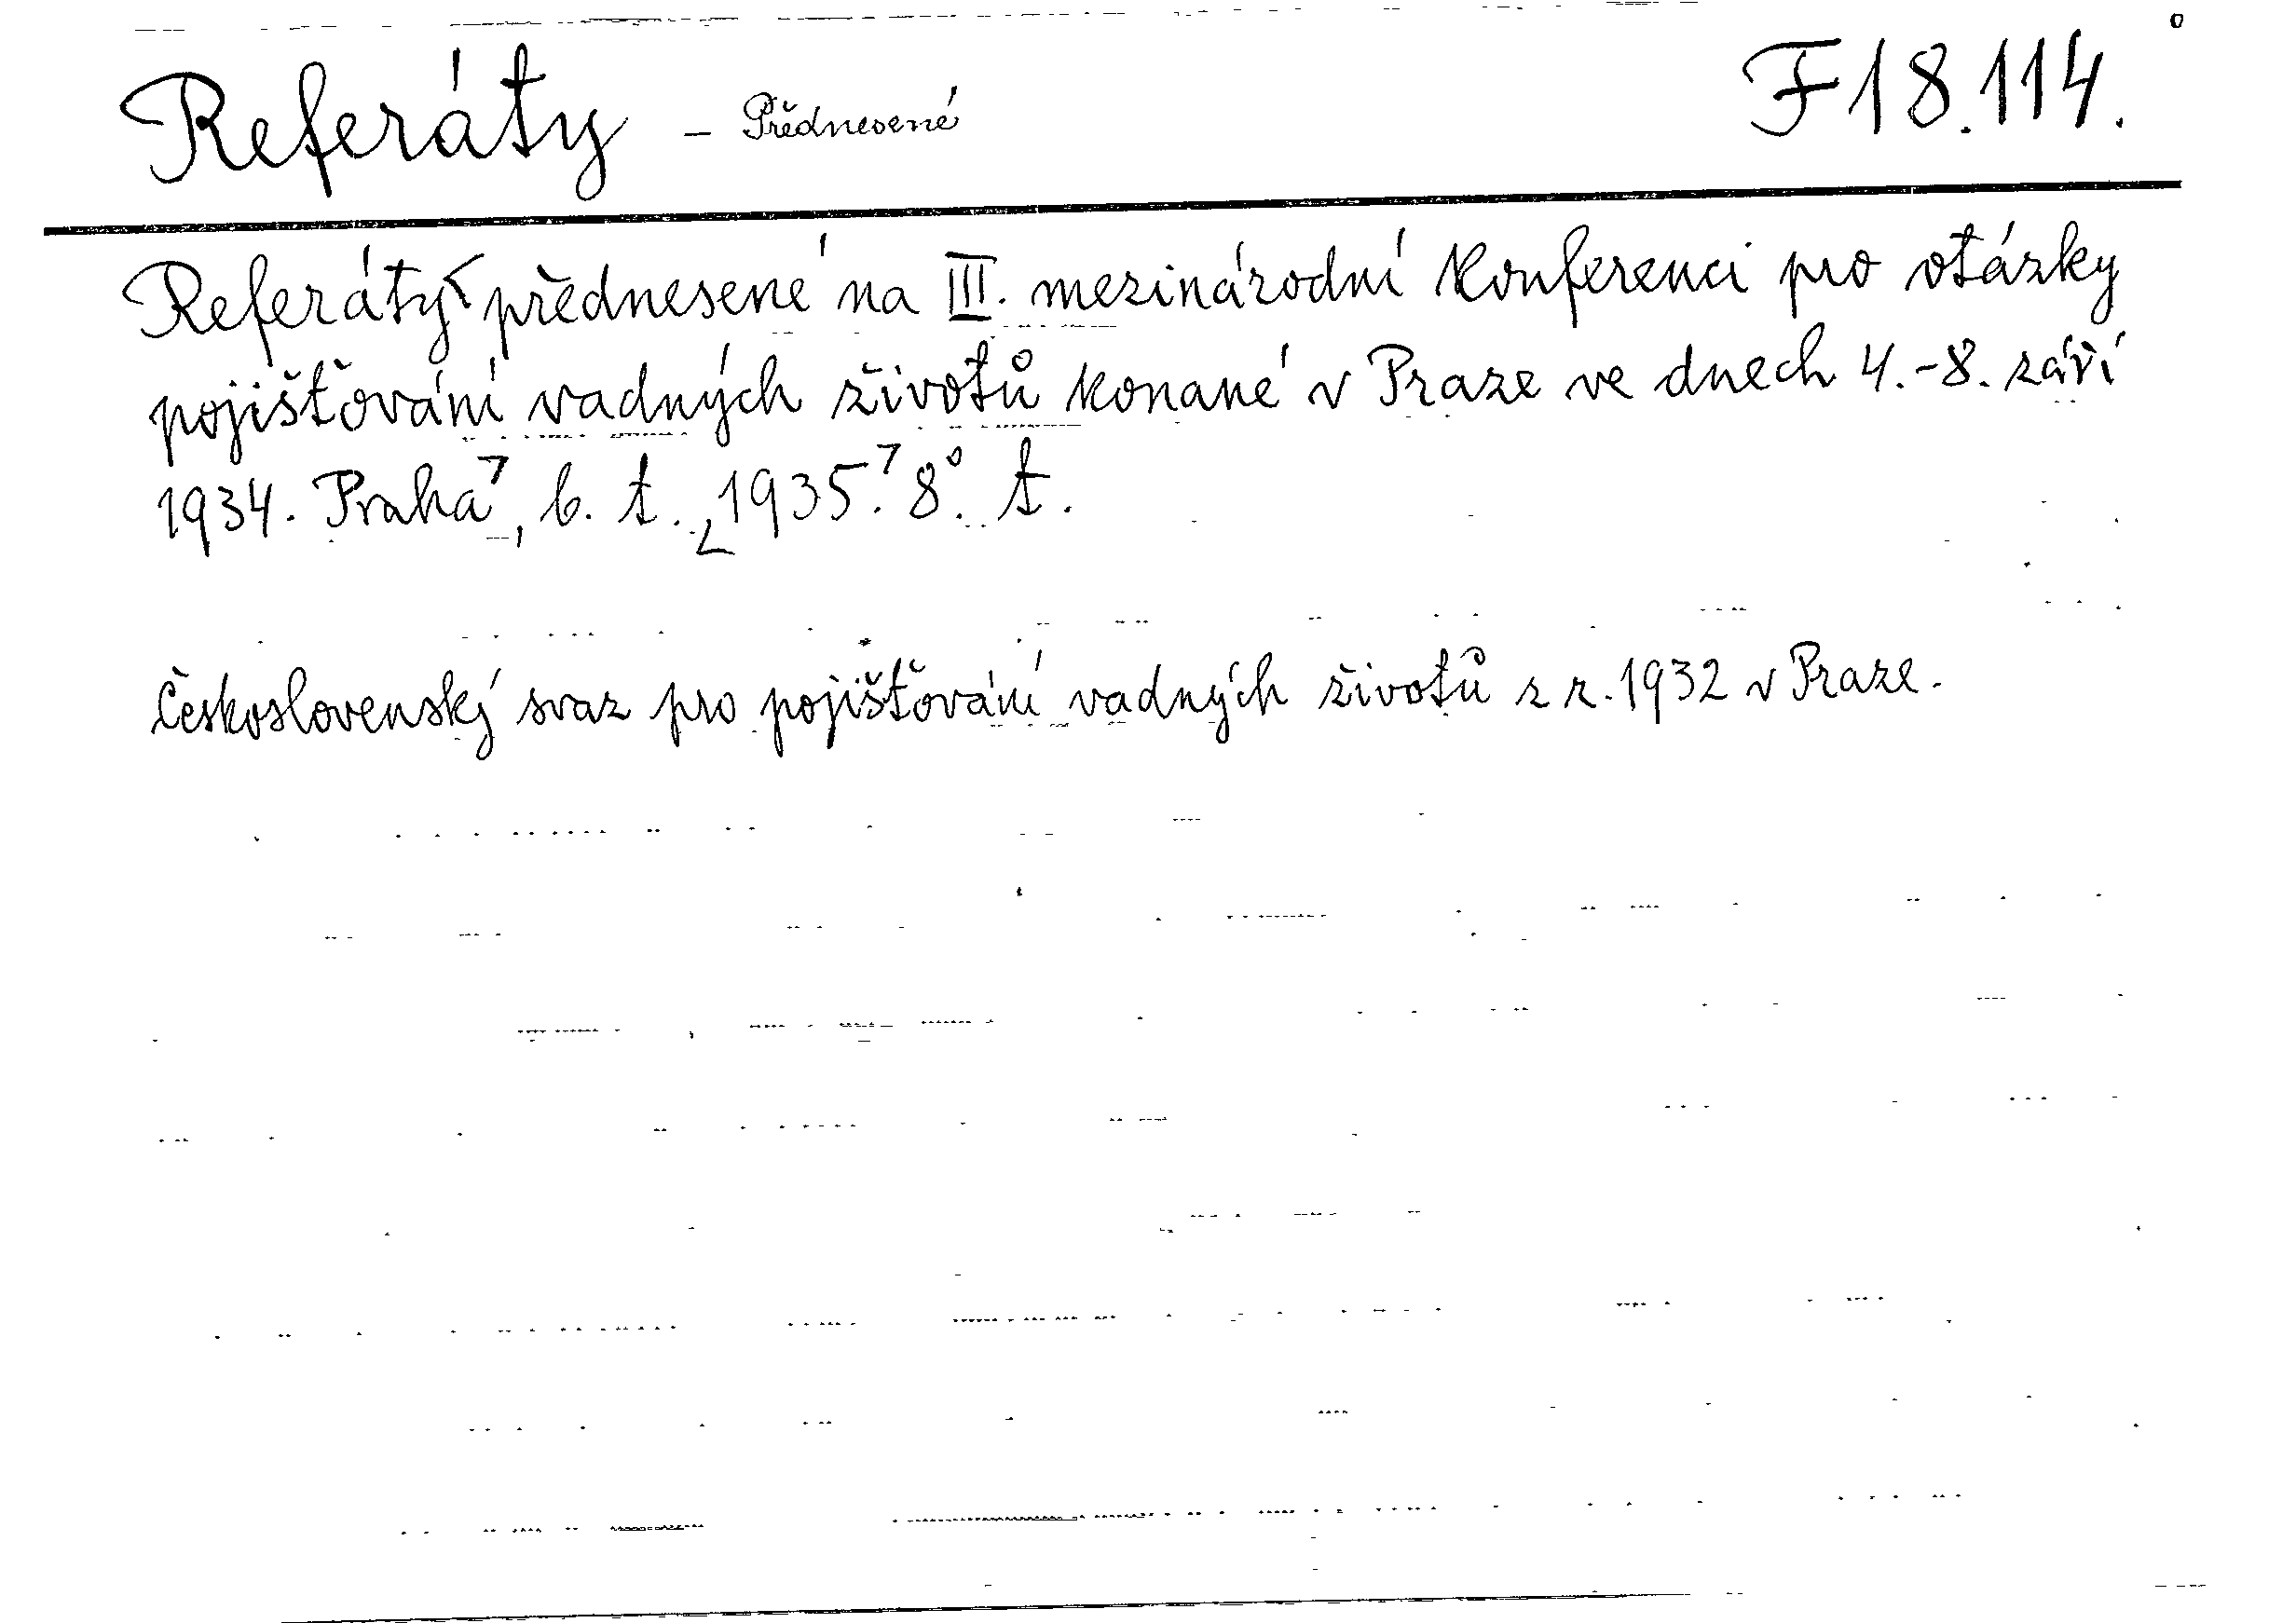 Referáty – Přednesené F 18.114.
Referáty přednesené na III. mezinárodní konferenci pro otázky
pojišťování vadných životů konané v Praze ve dnech 4.-8. září
1934. Praha, b. t., 1935. 8°. t.
Československý svaz pro pojišťování vadných životů z r. 1932 v Praze.